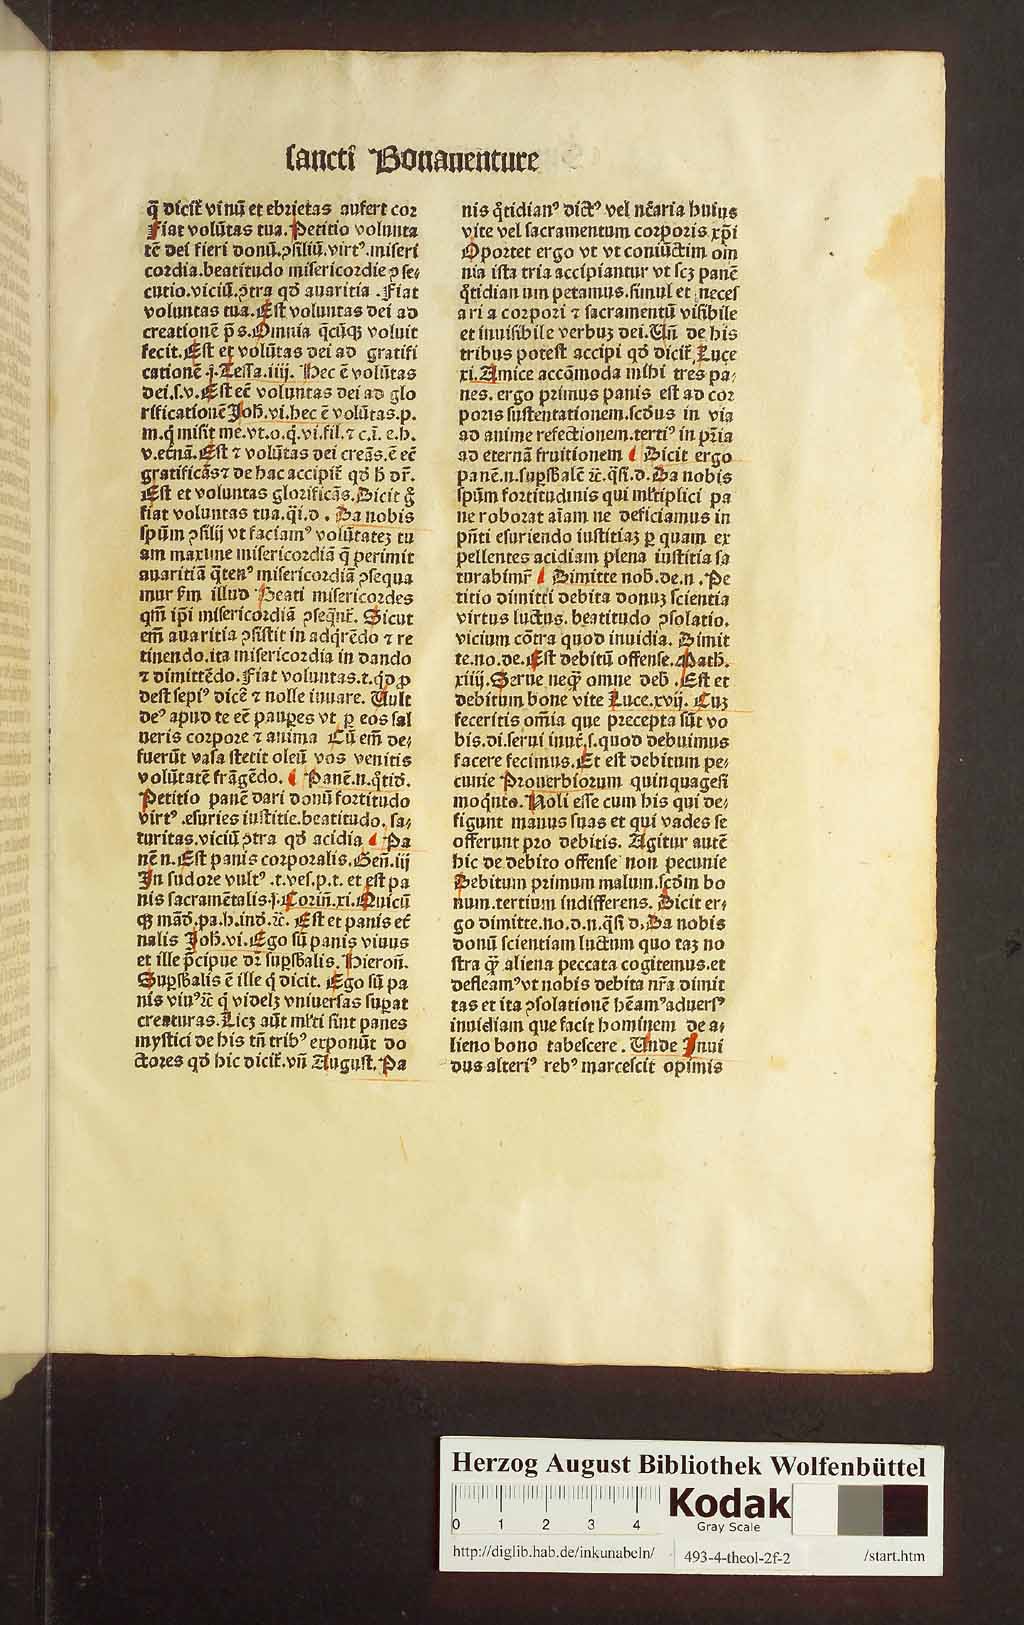 sancti Bonauenture
q̄ dicit̄ vinū et ebrietas aufert cor
Fiat volūtas tua. Petitio volunta
tē dei fieri donū.ↄsiliū.virtꝰ.miseri
cordia.beatitudo misericordie ↄse⸗
cutio.viciū.ↄtra qd̄ auaritia .Fiat
voluntas tua.Est voluntas dei ad
creationē p̄s.Omnia q̄cūqꝫ voluit
fecit.Est et volūtas dei ad gratifi
cationē .j.Tessa.iiij. Hec ē volūtas
dei.s.v.Est eē voluntas dei ad glo
rificationē Joh̄.vi.hec ē volūtas.p.
m.q̇ misit me.vt.o.q̇.vi.fil.⁊ c.ī. e.h.
v.etnā.Est ⁊ volūtas dei creās.ē eē
gratificās⁊ de hac accipit̄ qd̄ h̄ dr̄.
Est et voluntas glorificās.Dicit g̊
fiat voluntas tua.q̄i.d . Da nobis
spūm ↄsilij vt faciamꝰ volūtateꝫ tu
am maxime misericordiā q̄ perimit
auaritiā q̄tenꝰ misericordiā ↄsequa
mur scd̄m illud Beati misericordes
qm̄ ip̄i misericordiā ↄseqn̄t̄. Sicut
em̄ auaritia ↄsistit in adqrēdo ⁊ re
tinendo.ita misericordia in dando
⁊ dimittēdo.Fiat voluntas.t.qd̄ ꝓ
dest sepiꝰ dicē ⁊ nolle iuuare. Uult
deꝰ apud te eē paupes vt ꝑ eos sal
ueris corpore ⁊ anima Cū em̄ de⸗
fuerūt vasa stetit oleū vos venitis
volūtatē frāgēdo. Panē.n.q̇tid̄.
Petitio panē dari donū fortitudo
virtꝰ .esuries iustitie.beatitudo. sa⸗
turitas.viciū ↄtra qd̄ acidia Pa
nē n.Est panis corporalis.Gen̄.iij
In sudore vultꝰ .t.ves.p.t. et est pa
nis sacramētalis.j.Corin̄.xi.Quicū
qꝫ mād̄.pa.h.ind̄.⁊c̄. Est et panis et̄
nalis Joh̄.vi.Ego sū panis viuus
et ille p̄cipue dr̄ sup̄sb̄alis. Hieron̄.
Sup̄sb̄alis ē ille q̇ dicit. Ego sū pa
nis viuꝰ⁊c̄ q̇ videlꝫ vniuersas supat
creaturas.Licꝫ aūt ml̄ti sint panes
mystici de his tn̄ tribꝰ exponūt do
ctores qd̄ hic dicit̄.vn̄ August̄. Pa
nis q̇tidianꝰ dictꝰ vel nc̄aria huius
vite vel sacramentum corporis xp̄i
Oportet ergo vt vt coniūctim om
nia ista tria accipiantur vt scꝫ panē
q̇tidianum petamus.simul et neces
aria corpori ⁊ sacramentū visibile
et inuisibile verbuꝫ dei.Un̄ de his
tribus potest accipi qd̄ dicit̄ Luce
xi.Amice accōmoda mihi tres pa⸗
nes. ergo primus panis est ad cor
poris sustentationem.scd̄us in via
ad anime refectionem.tertiꝰ in pr̄ia
ad eternā fruitionem Dicit ergo
panē.n.sup̄sb̄alē ⁊c̄.q̄si.d.Da nobis
spūm fortitudinis qui ml̄tiplici pa
ne roborat aīam ne deficiamus in
pn̄ti esuriendo iustitiaꝫ ꝑ quam ex
pellentes acidiam plena iustitia sa
turabimr̄ Dimitte nob̄.de.n .Pe
titio dimitti debita donuꝫ scientia
virtus luctus. beatitudo ↄsolatio.
vicium cōtra quod inuidia. Dimit
te.no.de.Est debitū offense.Math̄.
xiiij.Serue neq̄ꝫ omne deb̄ .Est et
debitum bone vite Luce.xvij. Cuꝫ
feceritis om̄ia que precepta sūt vo
bis.di.serui inut̄.s.quod debuimus
facere fecimus.Et est debitum pe⸗
cunie Prouerbiorum quinquagesi
moq̇nto. Noli esse cum his qui de⸗
figunt manus suas et qui vades se
offerunt pro debitis. Agitur autē
hic de debito offense non pecunie
Debitum primum malum.scd̄m bo
num.tertium indifferens. Dicit er⸗
go dimitte.no.d.n.q̄si d.Da nobis
donū scientiam luctum quo taꝫ no
stra q̄ꝫ aliena peccata cogitemus.et
defleamꝰvt nobis debita nr̄a dimit
tas et ita ↄsolationē hēamꝰaduersꝰ
inuidiam que facit hominem de a⸗
lieno bono tabescere . Unde Inui
dus alteriꝰ rebꝰ marcescit opimis
Herzog August Bibliothek Wolfenbüttel
0 1 2 3 4
Kodak
Gray Scale
http://diglib.hab.de/inkunabeln/ 493-4-theol-2f-2 /start.htm